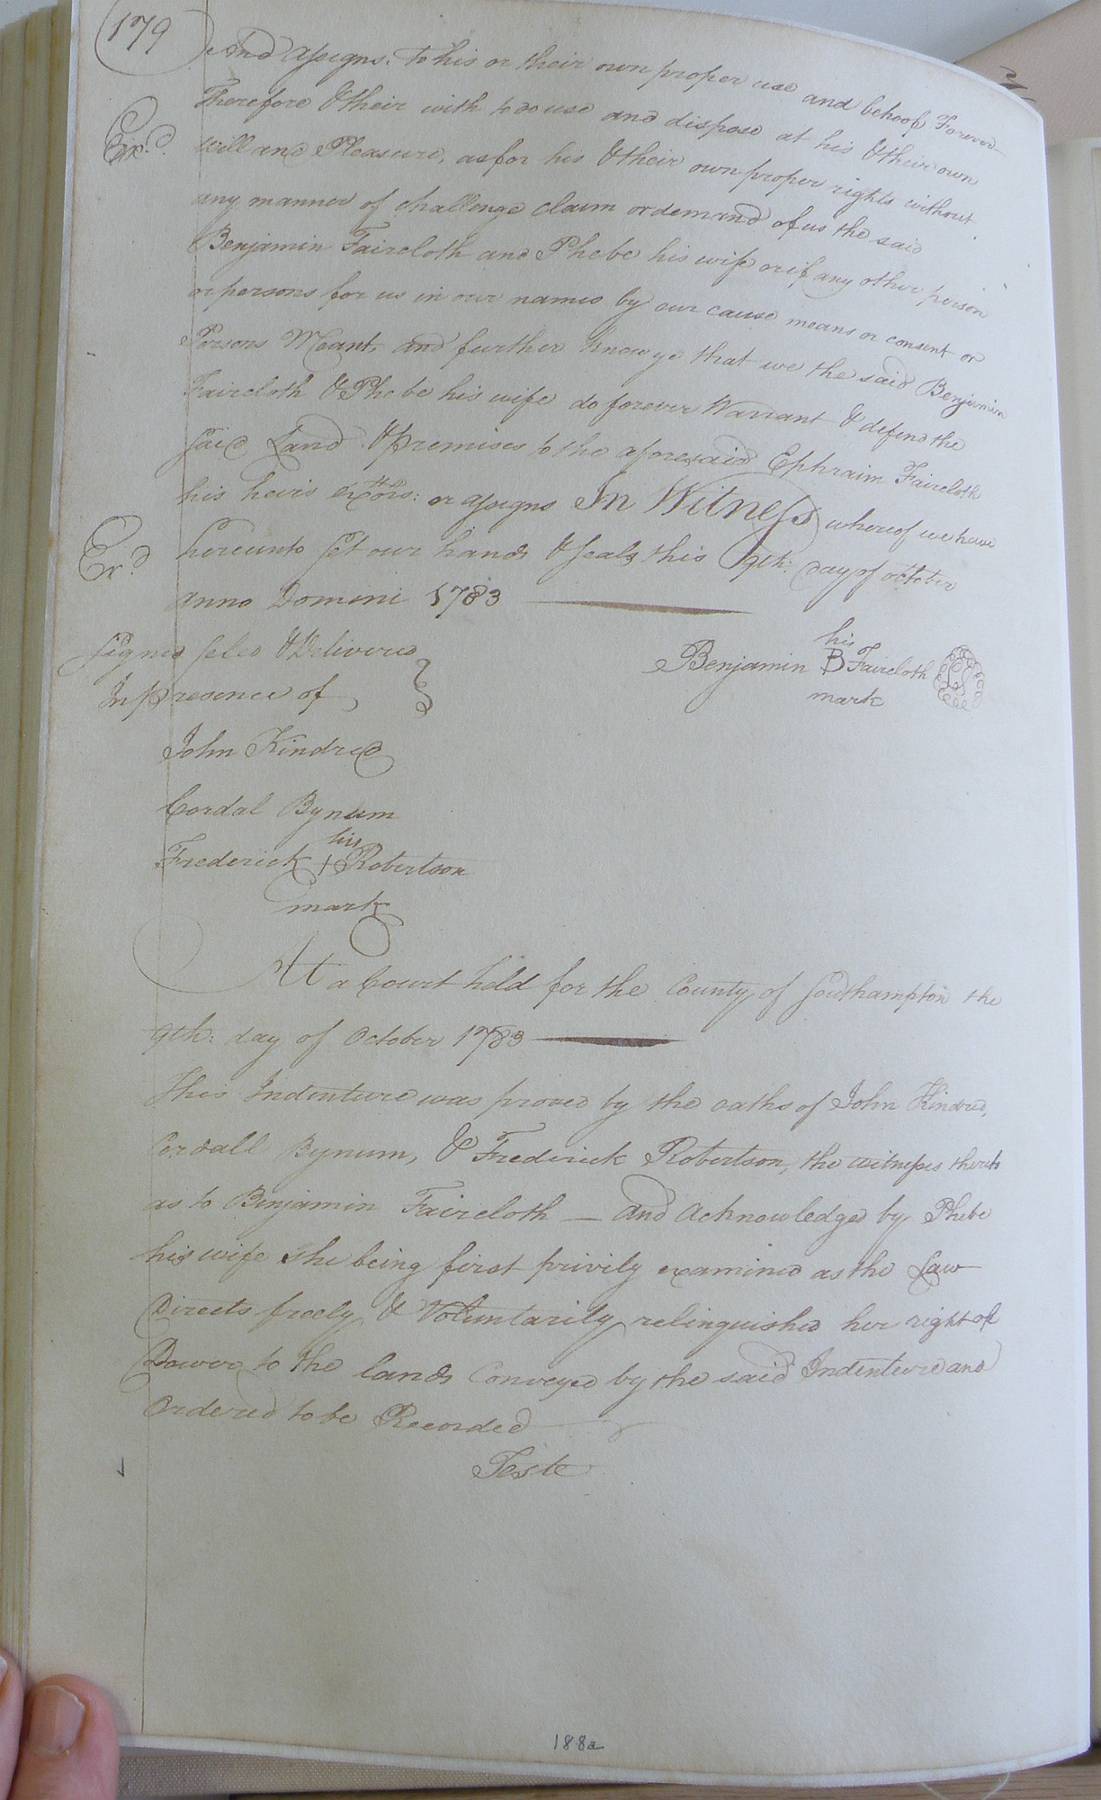 179
and assigns. To his or their own proper use and behoof Forever
Therefore & their with to do use and dispose at his & their own
Will and Pleasure, as for his & their own proper rights without
any manner of challenge claim or demand of us the said
Benjamin Faircloth and Phebe his wife or if any other person
or persons for us in our names by our cause means or consent or
Persons Meant, and further know ye that we the said Benjamin
Faircloth & Phebe his wife do forever Warrant & defend the
said Land & premises to the aforesaid Ephraim Faircloth
his heirs exors: or assigns In Witness whereof we have
Ex.d
hereunto set our hands & seals this 9th: day of october
anno Domini 1783
Signed seled & Delivered
In presence of
his
Benjamin B Faircloth LS
mark
John Kindred
Cordal Bynum
his
Frederick + Robertson
mark
At a Court held for the County of Southampton the
9th: day of October 1783
This Indenture was proved by the oaths of John Kindred,
Cordall Bynum, & Frederick Robertson, the witnesses thereto
as to Benjamin Faircloth — and acknowledged by Phebe
his wife she being first privily examined as the Law
Directs freely & Voluntarily relinquished her right of
Dower to the lands Conveyed by the said Indenture and
Ordered to be Recorded
Teste
188a